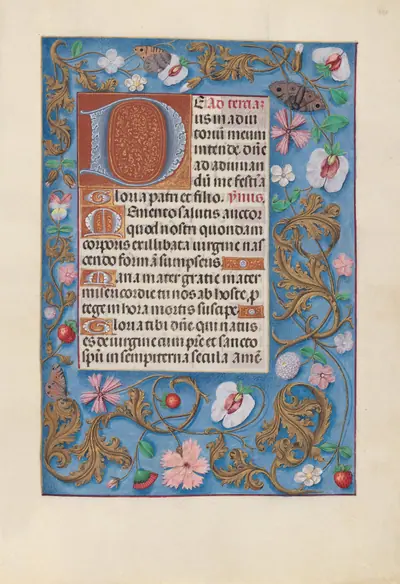 Ad tertiaꝫ
D Eus in adiut
oriũ meum
intende. dñe
ad adiuuan
dũ me festĩa
Gloria patri et filio. ẏmnus.
Memento salutis auctor
quod nostri quondam
corporis ex illibata uirgine nas
cendo formam sumpseris
Maria mater gratie mater
misericordie tu nos ab hoste p
tege in hora mortis suscipe
Gloria tibi dñe qui natus
es de uirgine cum pr̃e et sancto
spũ in sempiterna secula amẽ